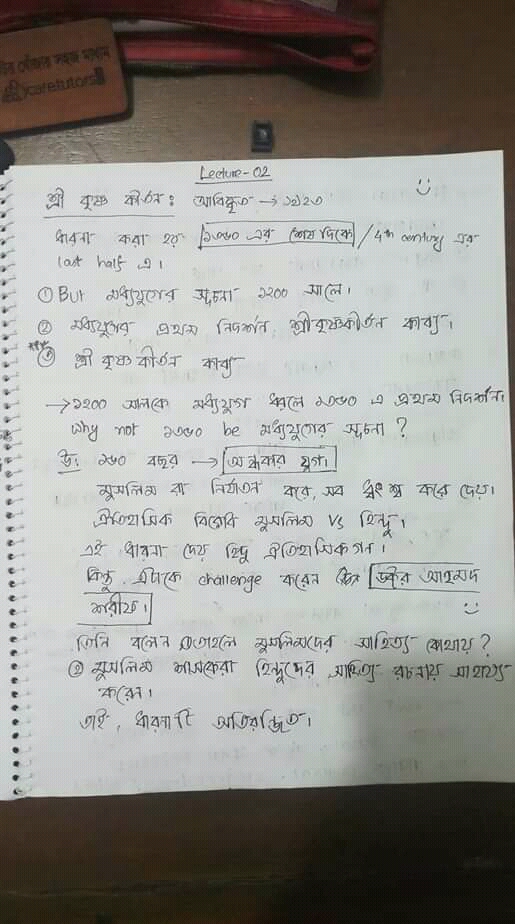 খোঁজার সহজ মাধ্যম
caretutors
Lecture-02
শ্রী কৃষ্ণ কীর্তন : আবিষ্কৃত →
ধারনা করা হয় ১৩৫০ এর শেষ দিকে / 4th century এর
last half এ।
① But মধ্যযুগের সূচনা ১২০০ সালে।
② মধ্যযুগের প্রথম নিদর্শন, শ্রীকৃষ্ণকীর্তন কাব্য।
③ শ্রী কৃষ্ণ কীর্তন কাব্য
→ ১২০০ সালকে মধ্যযুগ ধরলে ১৩৫০ এ প্রথম নিদর্শন।
Why not ১৩৫০ be মধ্যযুগের সূচনা ?
উ: ১৫০ বছর → অন্ধকার যুগ।
মুসলিম রা নির্যাতন করে, সব ধ্বংশ করে দেয়।
ঐতিহাসিক বিরোধ মুসলিম vs হিন্দু।
এই ধারনা দেয় হিন্দু ঐতিহাসিকগন।
কিন্তু, এটাকে challenge করেন ডক্টর আহমদ
শরীফ।
তিনি বলেন তাহলে মুসলিমদের সাহিত্য কোথায় ?
② মুসলিম শাসকেরা হিন্দুদের সাহিত্য রচনায় সাহায্য
করেন।
তাই, ধারনাটি অতিরঞ্জিত।